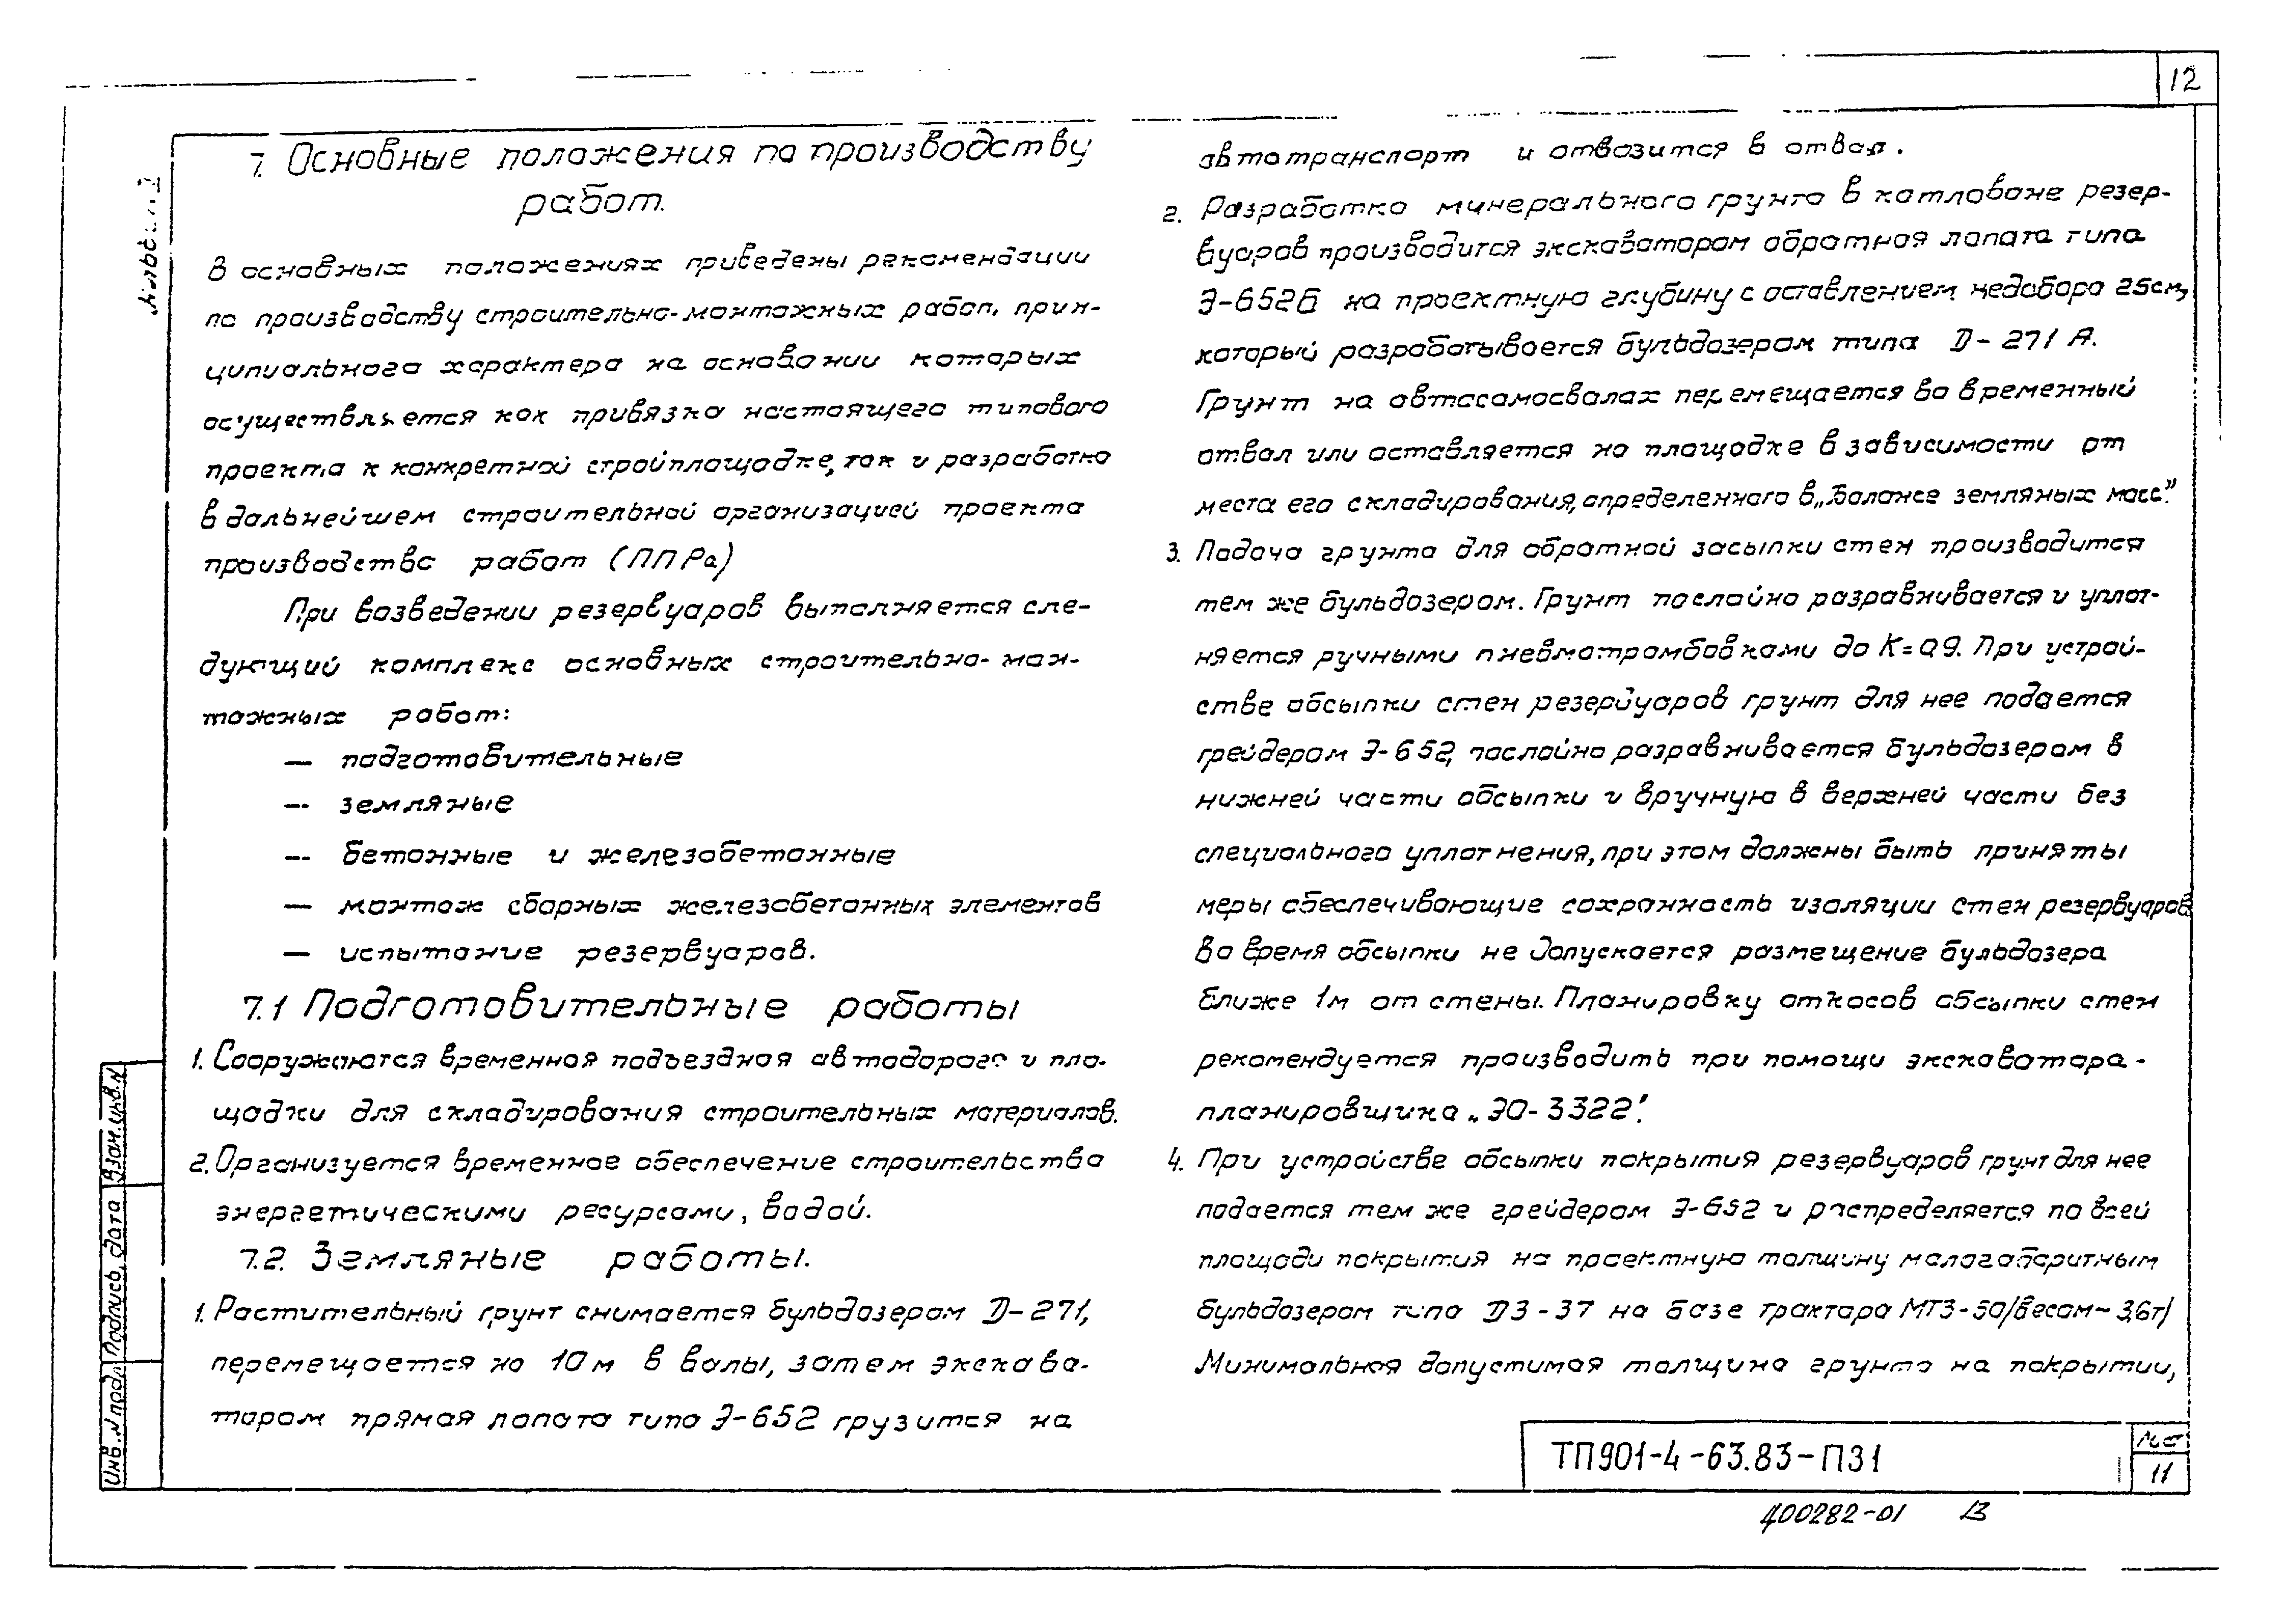 12
Альбом I
7. Основные положения по производству
работ.
В основных положениях приведены рекомендации
по производству строительно-монтажных работ, прин-
ципиального характера на основании которых
осуществляется как привязка настоящего типового
проекта к конкретной стройплощадке, так и разработка
в дальнейшем строительной организацией проекта
производства работ (ППРа)
При возведении резервуаров выполняется сле-
дующий комплекс основных строительно-мон-
тажных работ:
— подготовительные
— земляные
— бетонные и железобетонные
— монтаж сборных железобетонных элементов
— испытание резервуаров.
7.1 Подготовительные работы
1. Сооружаются временная подъездная автодорога и пло-
щадки для складирования строительных материалов.
2. Организуется временное обеспечение строительства
энергетическими ресурсами, водой.
7.2. Земляные работы.
1. Растительный грунт снимается бульдозером Д-271,
перемещается на 10м в валы, затем экскава-
тором прямая лопата типа Э-652 грузится на
автотранспорт и отвозится в отвал.
2. Разработка минерального грунта в котловане резер-
вуаров производится экскаватором обратная лопата типа
Э-652Б на проектную глубину с оставлением недобора 25см,
который разрабатывается бульдозером типа Д-271А.
Грунт на автосамосвалах перемещается во временный
отвал или оставляется на площадке в зависимости от
места его складирования, определенного в „Балансе земляных масс".
3. Подача грунта для обратной засыпки стен производится
тем же бульдозером. Грунт послойно разравнивается и уплот-
няется ручными пневмотрамбовками до К=0,9. При устрой-
стве обсыпки стен резервуаров грунт для нее подается
грейдером Э-652, послойно разравнивается бульдозером в
нижней части обсыпки и вручную в верхней части без
специального уплотнения, при этом должны быть приняты
меры обеспечивающие сохранность изоляции стен резервуаров
Во время обсыпки не допускается размещение бульдозера
ближе 1м от стены. Планировку откосов обсыпки стен
рекомендуется производить при помощи экскаватора-
планировщика „ЭО-3322".
4. При устройстве обсыпки покрытия резервуаров грунт для нее
подается тем же грейдером Э-652 и распределяется по всей
площади покрытия на проектную толщину малогабаритным
бульдозером типа ДЗ-37 на базе трактора МТЗ-50/весом ~ 3,6т/
Минимальная допустимая толщина грунта на покрытии,
Инв.N подл Подпись, дата Взам.инв.N
ТП901-4-63.83-ПЗ1
Лист
11
400282-01 13